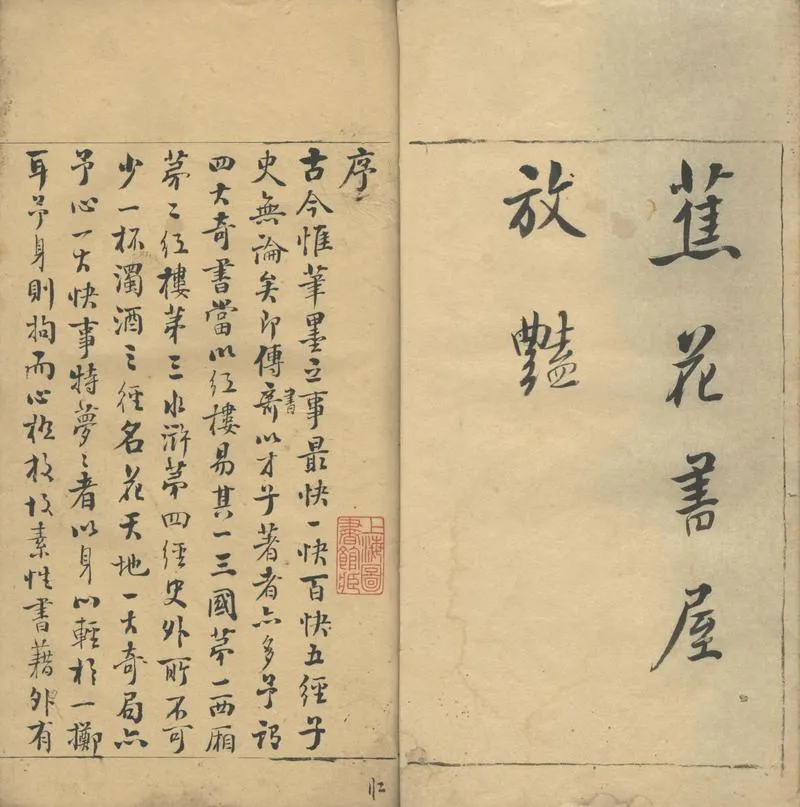 蕉花書屋
放豔
序
古今惟筆墨之事最快一快百快五經子
史無論矣即傳奇書以才子著者亦多予謂
四大奇書當以紅樓易其一三國第一西廂
第二紅樓第三水滸第四經史外所不可
少一杯濁酒之經名花天地一大奇局亦
予心一大快事特夢夢者以身心輕於一擲
耳予身則拘而心極放故素性書藉外有
上海圖
書館藏